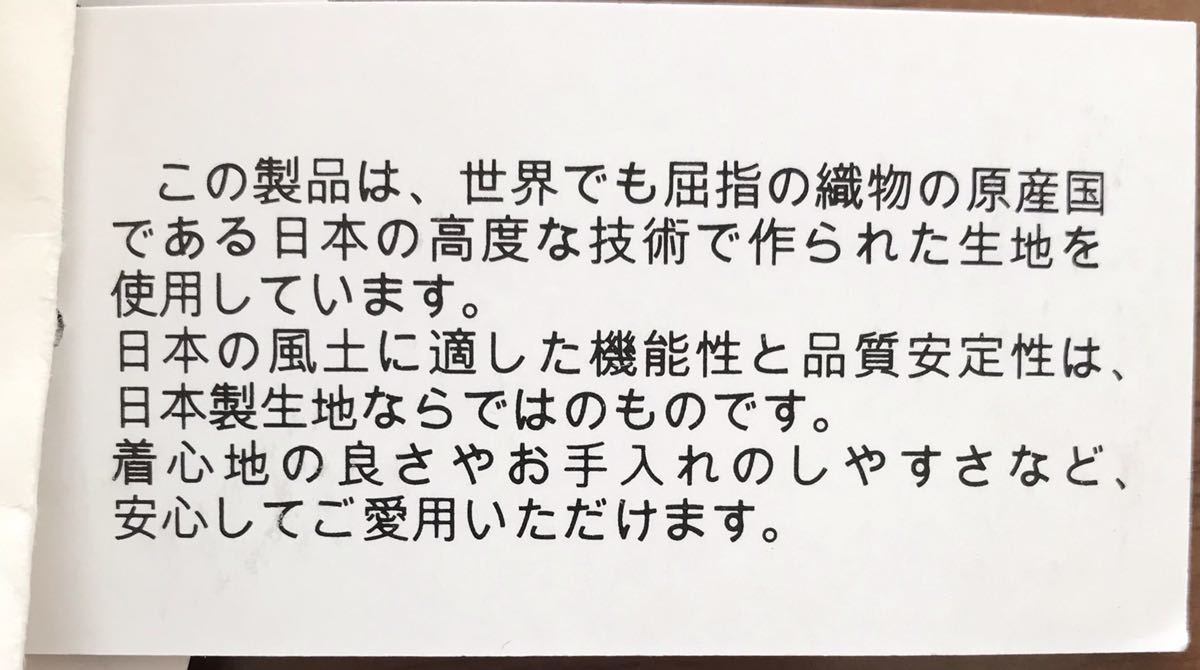 この製品は、世界でも屈指の織物の原産国
である日本の高度な技術で作られた生地を
使用しています。
日本の風土に適した機能性と品質安定性は、
日本製生地ならではのものです。
着心地の良さやお手入れのしやすさなど、
安心してご愛用いただけます。